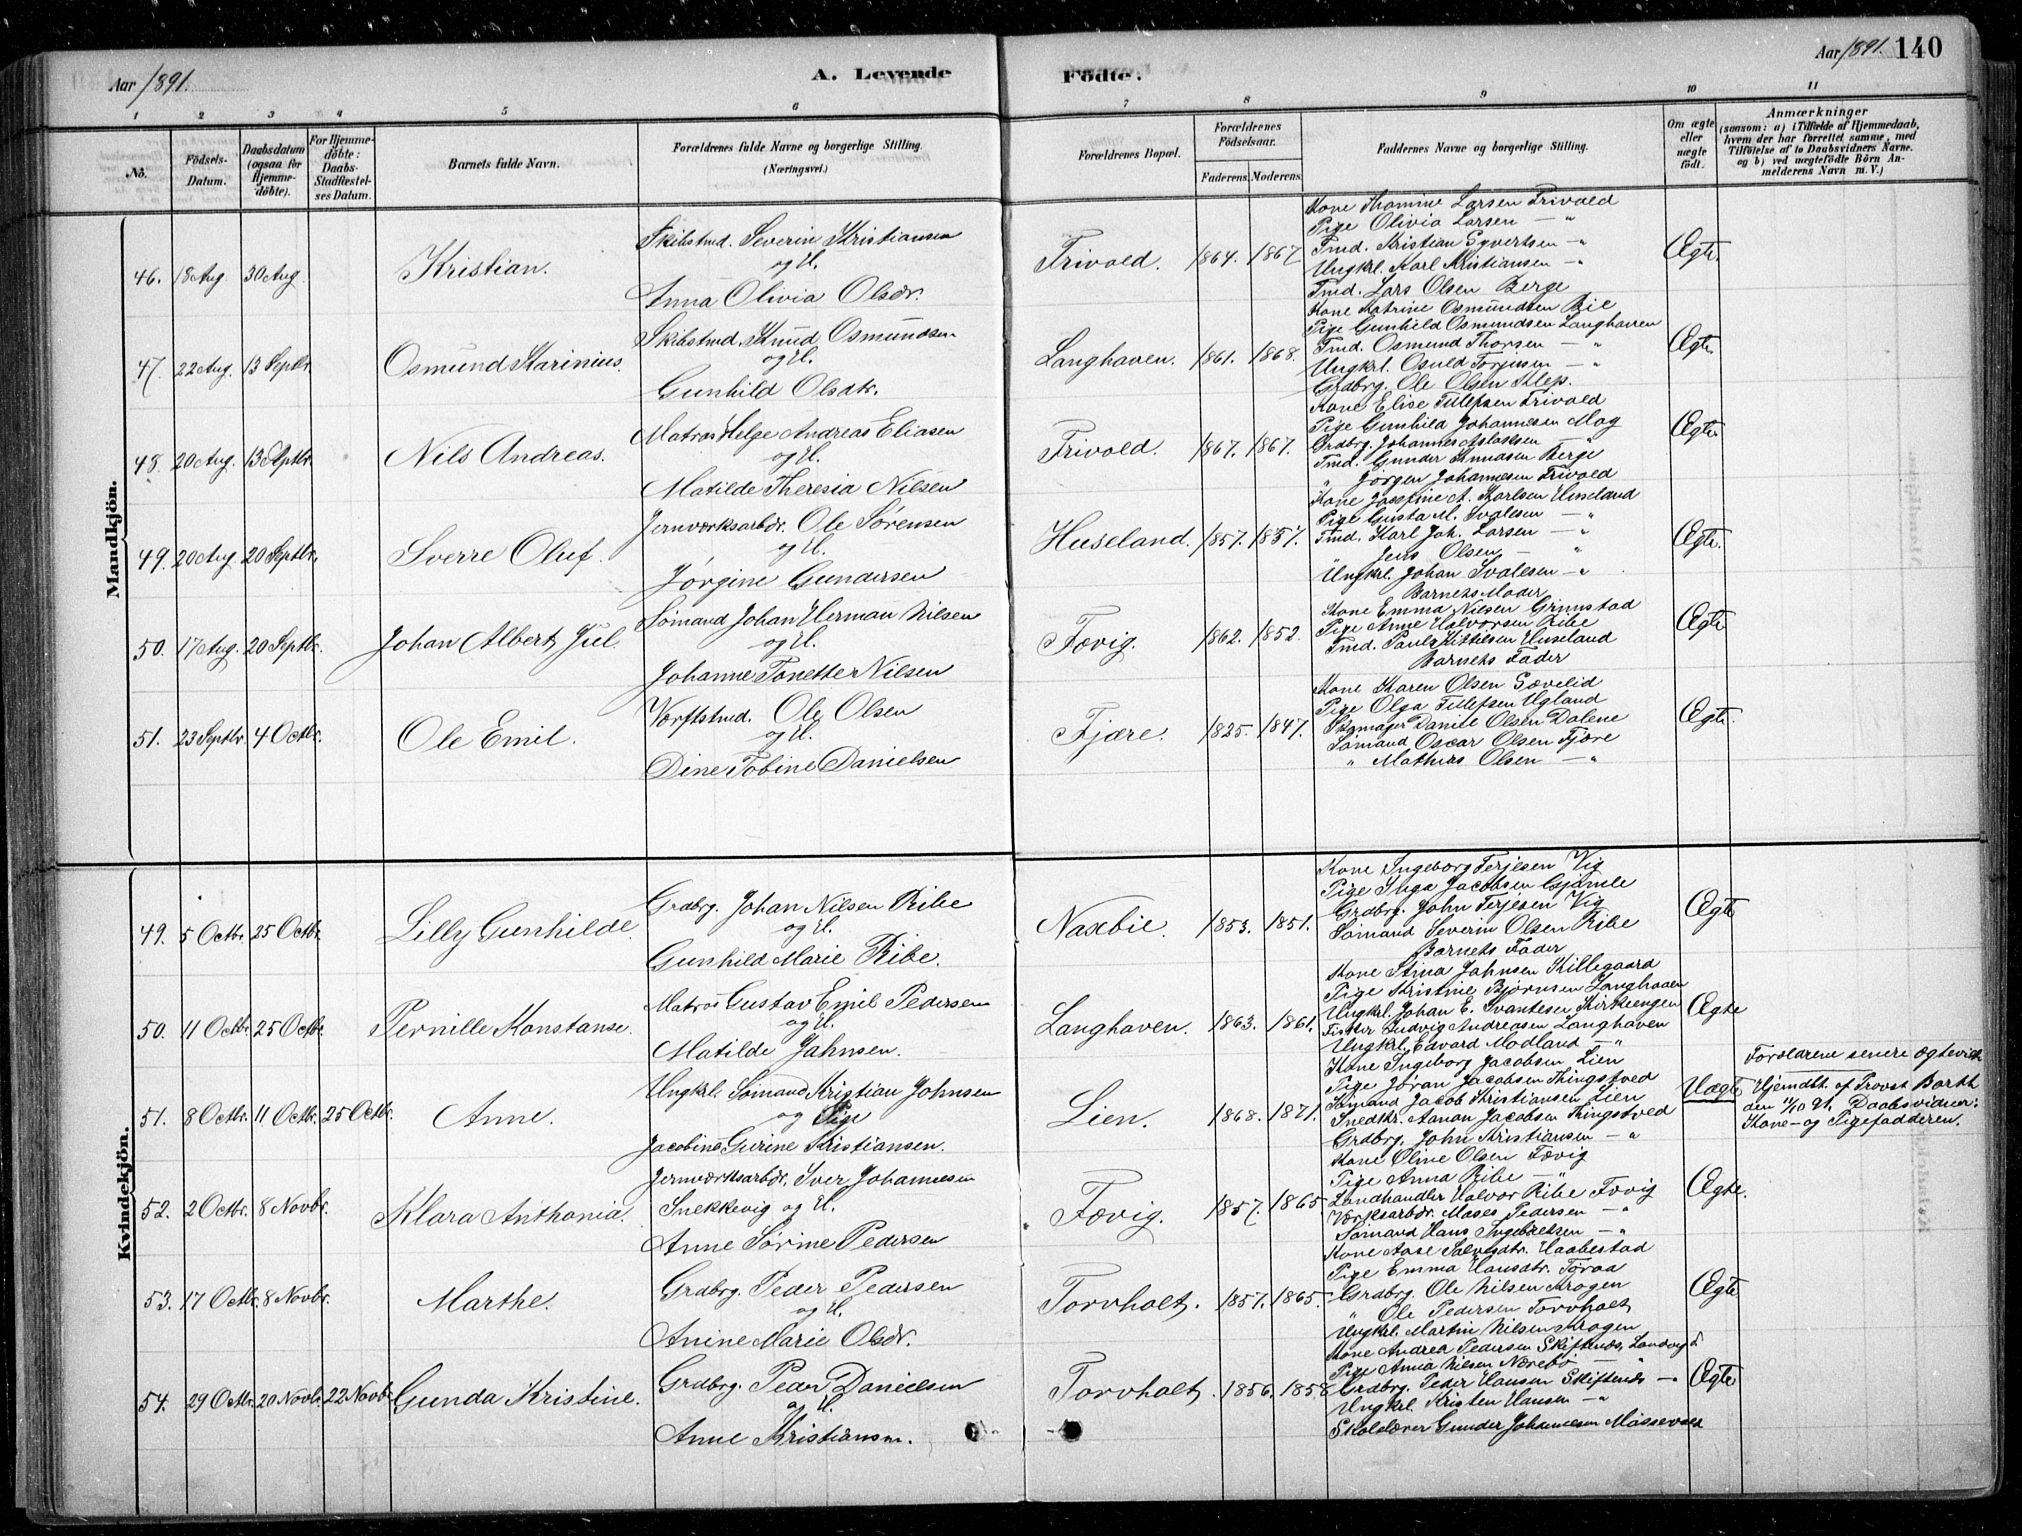 Aar 1891.
A. Levende Fødte.
Aar 1891. 140
1 2 3 4 5 6 7 8 9 10 11
No.
Fødsels-Datum.
Daabsdatum (ogsaa for Hjemmedøbte).
For Hjemmedøbte: Daabs-Stadfæstelses Datum.
Barnets fulde Navn.
Forældrenes fulde Navne og borgerlige Stilling. (Næringsvei.)
Forældrenes Bopæl.
Forældrenes Fødselsaar.
Faderens. Moderens.
Faddernes Navne og borgerlige Stilling.
Om ægte eller uægte født.
Anmærkninger (saasom: a) i Tilfælde af Hjemmedaab, hvem der har forrettet samme, med Tilføielse af to Daabsvidners Navne. og b) ved uægtefødte Børn Anmelderens Navn m. V.)
Mandkjøn.
46. 18 Aug. 30 Aug. Kristian.
Skibstmd. Severin Kristiansen
og H.
Anna Olivia Olsdr.
Trivold. 1864. 1867
Kone Thomine Larsen Trivold
Pige Olivia Larsen — "
Tmd. Kristian Syvertsen — "
Ungkrl. Karl Kristiansen — "
Tmd. Lars Olsen Berge
Ægte.
47. 22 Aug. 13 Septbr. Osmund Marinius.
Skibstmd. Knud Osmundsen
og H.
Gunhild Olsdtr.
Langhaven. 1861. 1868.
Kone Katrine Osmundsen Bie
Pige Gunhild Osmundsen Langhaven
Tmd. Osmund Thorsen — "
Ungkrl. Osuld Torjusen — "
Grdbrg. Ole Olsen Klep.
Ægte
48. 20 Aug. 13 Septbr. Nils Andreas.
Matros Helge Andreas Eliasen
og H.
Matilde Theresia Nilsen
Trivold. 1867. 1867.
Kone Elise Tellefsen Trivold
Pige Gunhild Johannesen Mag
Grdbrg. Johannes Aslaksen — "
Tmd. Gunder Knudsen Berge
" Jørgen Johannesen Trivold
Ægte
49. 20 Aug. 20 Septbr. Sverre Oluf.
Jernværksarbdr. Ole Sørensen
og H.
Jørgine Gundersen
Huseland. 1857. 1857.
Kone Josefine A. Karlsen Huseland
Pige Gusta M. Svalesen — "
Tmd. Karl Joh. Larsen — "
Jens Olsen — "
Ungkrl. Johan Svalesen — "
Ægte.
50. 17 Aug. 20 Septbr. Johan Albert Juel.
Sømand Johan Herman Nilsen
og H.
Johanne Tonette Nilsen
Fævig. 1862. 1852.
Barnets Moder
Kone Emma Nilsen Grimstad
Pige Anne Halvorsen Ribe
Tmd. Paul Kittilsen Huseland
Barnets Fader
Ægte
51. 23 Septbr. 4 Octbr. Ole Emil.
Værftstmd. Ole Olsen
og H.
Dine Tobine Danielsen
Fjære. 1825. 1847.
Kone Karen Olsen Sævelid
Pige Olga Tellefsen Ugland
Skomager Daniel Olsen Dalene
Sømand Oscar Olsen Fjære
" Mathias Olsen — "
Ægte.
Kvindekjøn.
49. 5 Octbr. 25 Octbr. Lilly Gunhilde.
Grdbrg. Johan Nilsen Ribe
og H.
Gunhild Marie Ribe.
Naxebie. 1853. 1851.
Kone Ingeborg Terjesen Vig
Pige Inga Jacobsen Gjømle
Grdbrg. John Terjesen Vig
Sømand Severin Olsen Ribe
Barnets Fader
Ægte
50. 11 Octbr. 25 Octbr. Pernille Konstanse.
Matros Gustav Emil Pedersen
og H.
Matilde Jahnsen.
Langhaven. 1863. 1861.
Kone Stina Jahnsen Killegaard
Pige Kristine Bjørnsen Langhaven
Ungkrl. Johan E. Svantesen Kirkeengen
Fisker Ludvig Andreasen Langhaven
Ungkrl. Edvard Modland — "
Ægte
51. 8 Octbr. 11 Octbr. 25 Octbr. Anne.
Ungkrl. Sømand Kristian Johnsen
og Pige
Jacobine Gurine Kristiansen.
Lien. 1868. 1871.
Kone Ingeborg Jacobsen Lien
Pige Jøran Jacobsen Thingstved
Sømand Jacob Kristiansen Lien
Snedkr. Aanon Jacobsen Thingstved
Grdbrg. John Kristiansen — "
Uægte
Forældrene senere ægteviet
Hjemdbt. af Provst Barth
den 11/10 91. Daabsvidner:
Kone- og Pigefadderen.
52. 2 Octbr. 8 Novbr. Klara Anthonia.
Jernværksarbdr. Iver Johannesen
Snekkevig og H.
Anne Sørine Pedersen
Fævig. 1857. 1865
Kone Oline Olsen Fævig
Pige Anna Ribe — "
Landhandler Halvor Ribe Fævig
Værksarbdr. Moses Pedersen — "
Sømand Hans Ingebretsen — "
Ægte.
53. 17 Octbr. 8 Novbr. Marthe.
Grdbrg. Peder Pedersen
og H.
Anine Marie Olsdr.
Torvholt. 1857. 1865.
Kone Aase Salvesdtr. Haabestad
Pige Emma Hansdtr. Tøraa
Grdbrg. Ole Nilsen Krogen
" Ole Pedersen Torvholt
Ungkrl. Martin Nilsen Krogen
Ægte
54. 29 Octbr. 20 Novbr. 22 Novbr. Gunda Kristine.
Grdbrg. Peder Danielsen
og H.
Anne Kristiansen.
Torvholt. 1856. 1858
Kone Andrea Pedersen Skiftenes, Landvig
Pige Anna Nilsen Nærebø — "
Grdbrg. Peder Hansen Skiftenes — "
Ungkrl. Kristen Hansen — "
Skolelærer Gunder Johannesen
Ægte